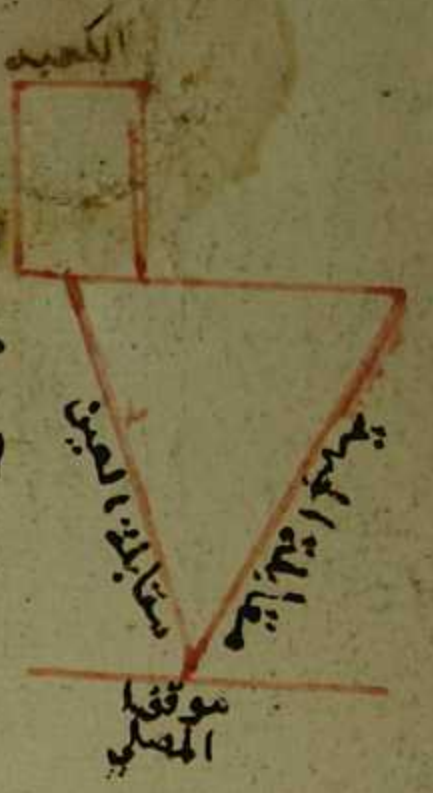 الكعبه
مقابلة العين
مقابلة الجهة
موقف
المصلي